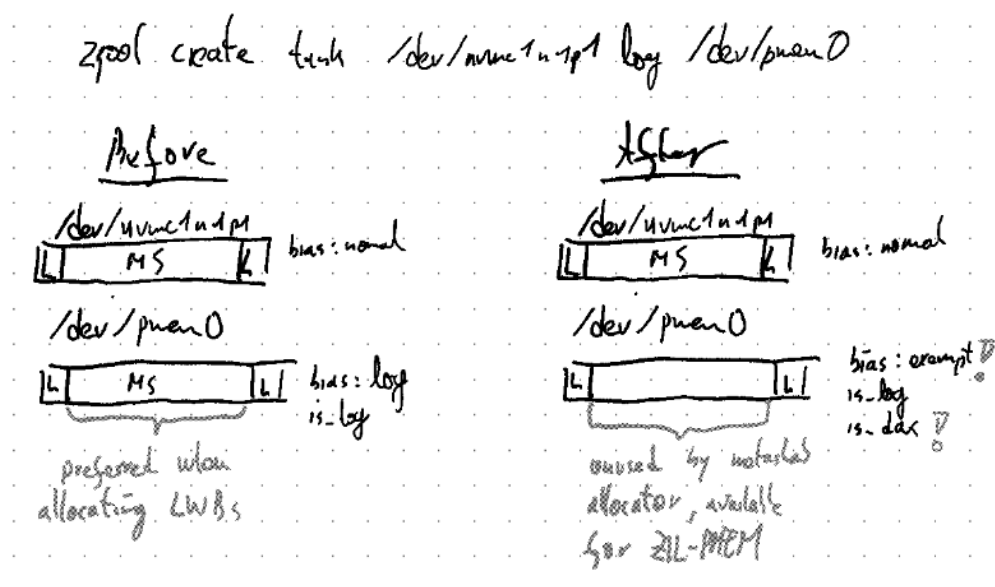 zpool create tank /dev/nvme1n1p1 log /dev/pmem0
Before
/dev/nvme1n1p1
L MS L bias: normal
/dev/pmem0
L MS L bias: log
is_log
preferred when
allocating LWBs
After
/dev/nvme1n1p1
L MS L bias: normal
/dev/pmem0
L L bias: exempt !
is_log
is_dax !
unused by metaslab
allocator, available
for ZIL-PMEM